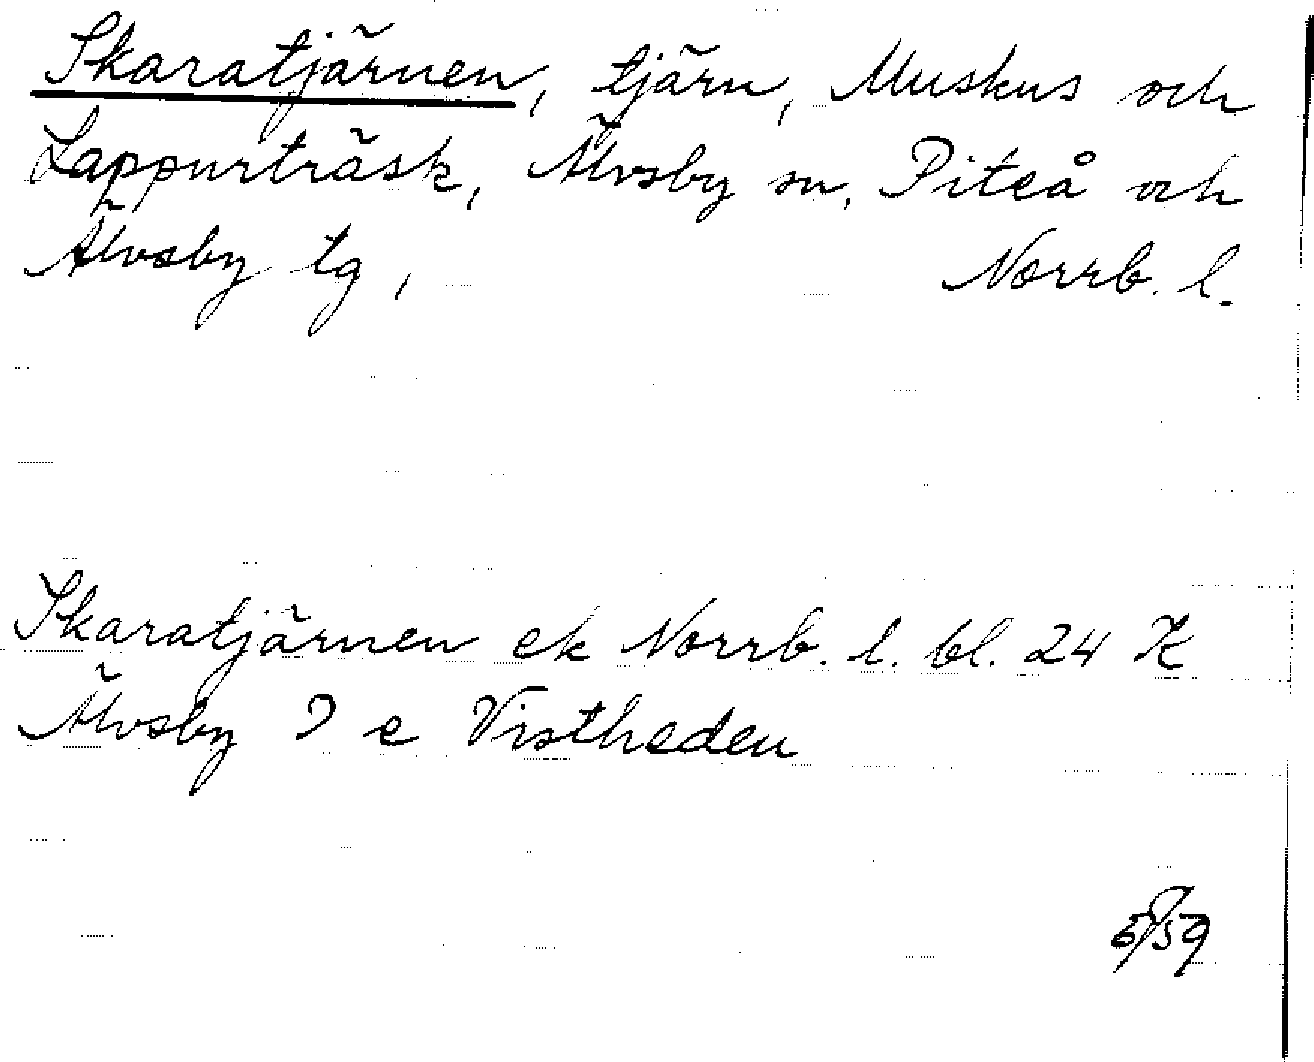 Skaratjärnen, tjärn, Muskus och
Lappurträsk, Älvsby sn, Piteå och
Älvsby tg, Norrb. l.
Skaratjärnen ek Norrb. l. bl. 24 K
Älvsby I e Vistheden